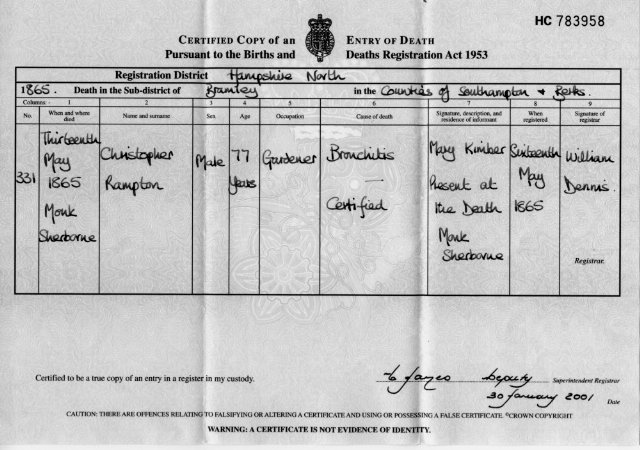 HC 783958
CERTIFIED COPY OF AN ENTRY OF DEATH
Pursuant to the Births and Deaths Registration Act 1953
Registration District Hampshire North
1865. Death in the Sub-district of Bramley in the Counties of Southampton & Berks.
Columns:- 1 2 3 4 5 6 7 8 9
No. When and where died Name and surname Sex Age Occupation Cause of death Signature, description, and residence of informant When registered Signature of registrar
331 Thirteenth May 1865 Monk Sherborne Christopher Rampton Male 77 Years Gardener Bronchitis — Certified Mary Kimber Present at the Death Monk Sherborne Sixteenth May 1865 William Dennis. Registrar.
Certified to be a true copy of an entry in a register in my custody. Deputy Superintendent Registrar
30 January 2001 Date
CAUTION: THERE ARE OFFENCES RELATING TO FALSIFYING OR ALTERING A CERTIFICATE AND USING OR POSSESSING A FALSE CERTIFICATE. ©CROWN COPYRIGHT
WARNING: A CERTIFICATE IS NOT EVIDENCE OF IDENTITY.